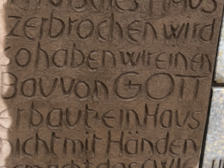 zerbrochen wird
so haben wir einen
Bau von GOTT
erbaut ein Haus
nicht mit Händen